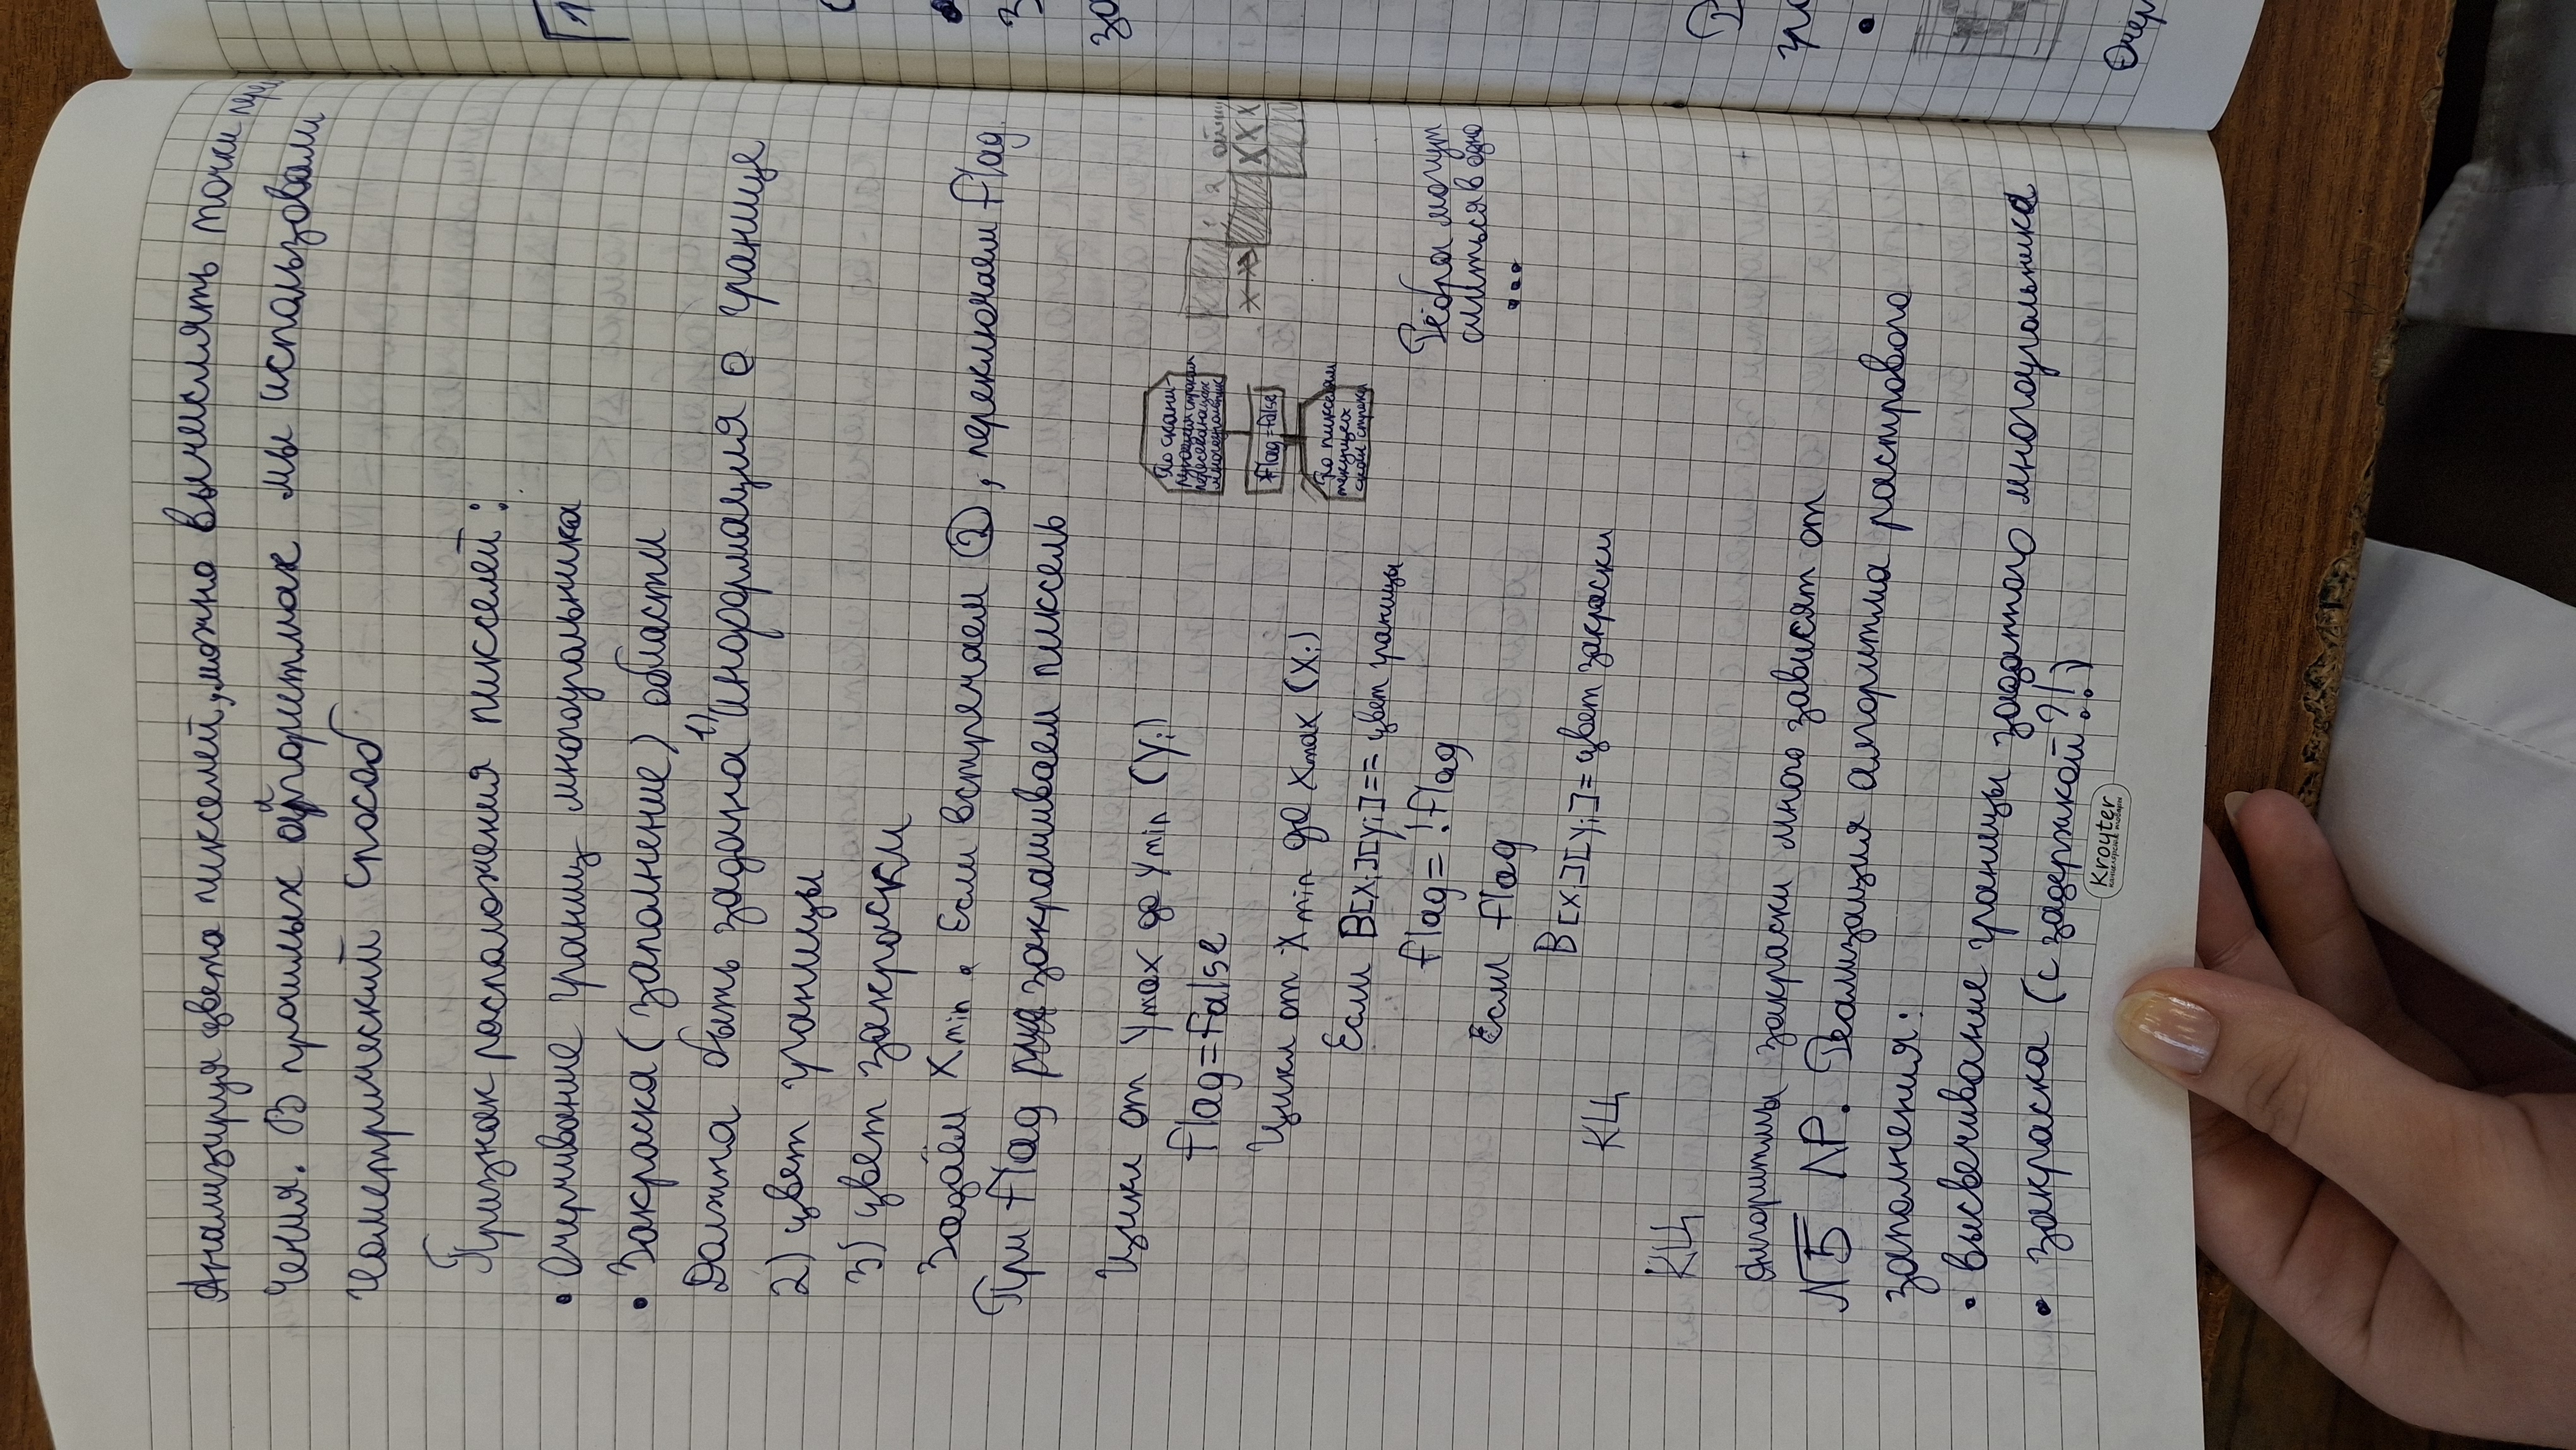 Анализируя цвета пикселей, можно вычислять точки пере
чения. В прошлых алгоритмах мы использовали
геометрический способ
Признак расположения пикселей:
• Очерчивание границ многоугольника
• Закраска (заполнение) области
Должна быть задана 1) информация о границе
2) цвет границы
3) цвет закраски
Задаём Xmin. Если встречаем ②, переключаем flag.
При flag закрашиваем пиксель
Цикл от Ymax до Ymin (Yi)
flag=false
Цикл от Xmin до Xmax (Xi)
Если B[Xi][Yi]== цвет границы
flag= !flag
Если flag
B[Xi][Yi]= цвет закраски
КЦ
КЦ
По скани-
рующим строкам
пересекающих
многоугольник
flag=false
По пикселям
текущей
скан строки
Рёбра могут
слиться в одно
...
Алгоритмы закраски много зависят от
№5 ЛР. Реализация алгоритма растрового
заполнения:
• высвечивание границы заданного многоугольника
• закраска (с задержкой?!)
Kroyter
канцелярские товары
Очер